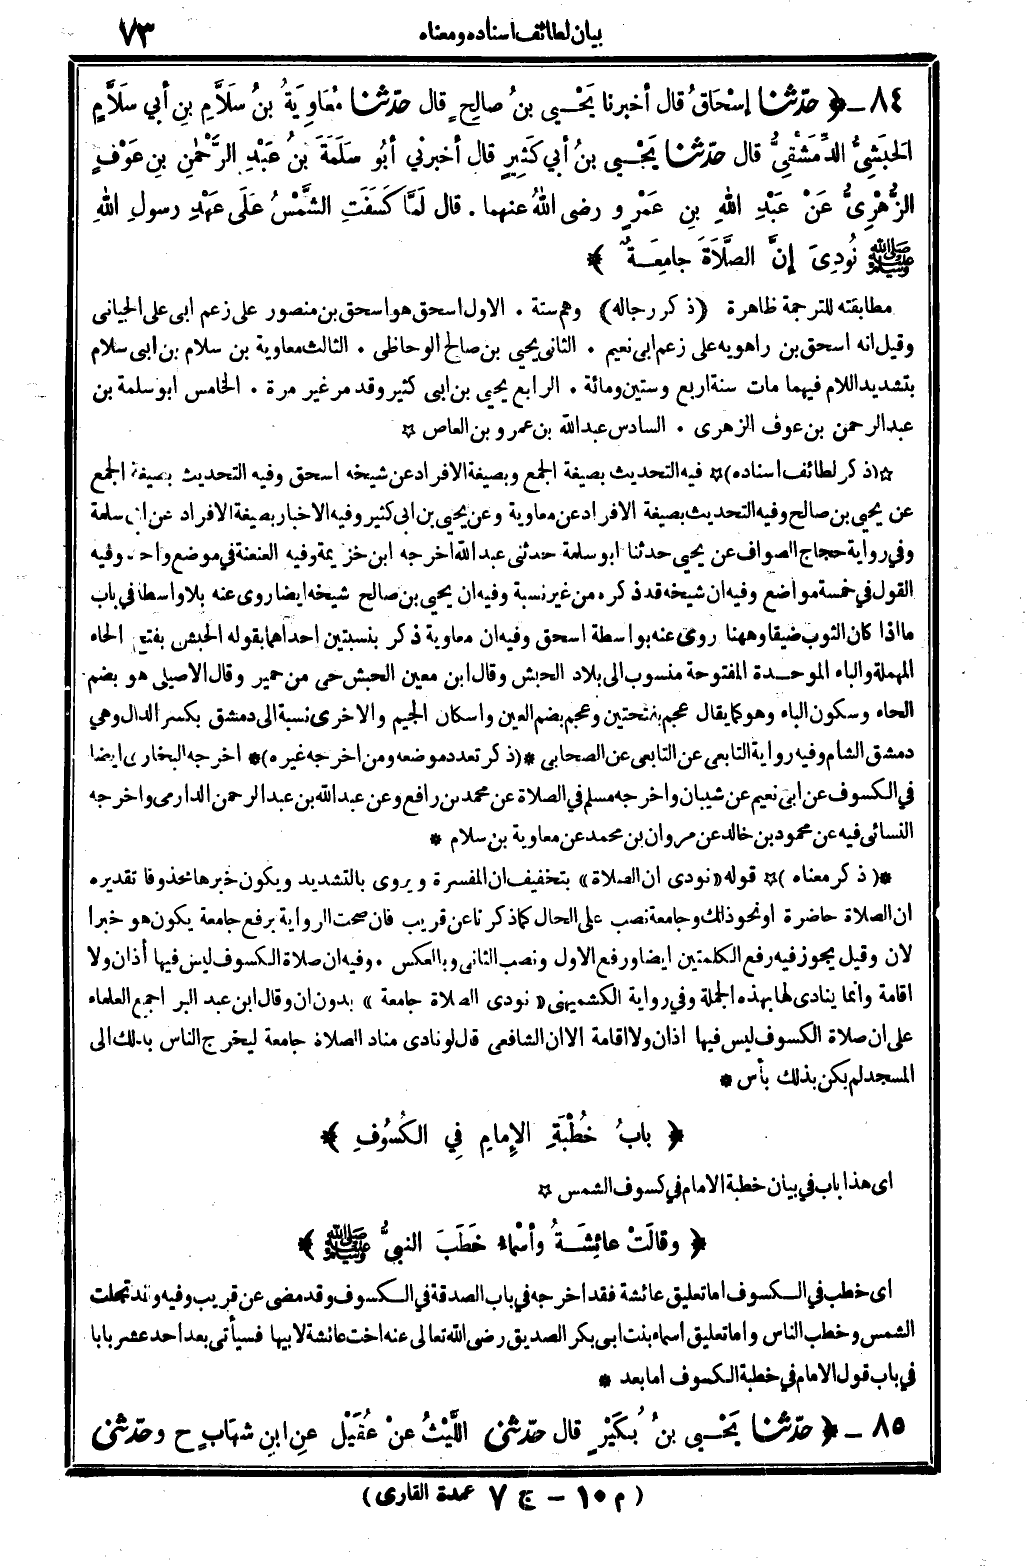 بيان لطائف اسناده ومعناه
٧٣
٨٤ - ﴿ حدّثنا إسْحَاقُ قال أخبرنا يَحْيى بنُ صالحٍ قال حدّثنا مُعَاوِيَةُ بنُ سَلَّامِ بنِ أبي سَلَّامٍ
الحَبَشِيُّ الدِّمَشْقِيُّ قال حدّثنا يَحْيى بنُ أبي كَثِيرٍ قال أخبرني أبُو سَلَمَةَ بنُ عَبْدِ الرَّحْمٰنِ بنِ عَوْفٍ
الزُّهْرِيُّ عَنْ عَبْدِ اللهِ بنِ عَمْرٍو رضى اللهُ عنهما . قال لَمَّا كَسَفَتِ الشَّمْسُ عَلَى عَهْدِ رسولِ اللهِ
ﷺ نُودِىَ إنَّ الصَّلَاةَ جامِعَةٌ ﴾
مطابقته للترجمة ظاهرة (ذكر رجاله) وهم ستة . الاول اسحق هو اسحق بن منصور على زعم ابى على الجيانى
وقيل انه اسحق بن راهويه على زعم ابى نعيم . الثانى يحيى بن صالح الوحاظى . الثالث معاوية بن سلام بن ابى سلام
بتشديد اللام فيهما مات سنة اربع وستين ومائة . الرابع يحيى بن ابى كثير وقد مر غير مرة . الخامس ابو سلمة بن
عبد الرحمن بن عوف الزهرى . السادس عبد الله بن عمرو بن العاص ☆
☆(ذكر لطائف اسناده)☆ فيه التحديث بصيغة الجمع وبصيغة الافراد عن شيخه اسحق وفيه التحديث بصيغة الجمع
عن يحيى بن صالح وفيه التحديث بصيغة الافراد عن معاوية وعن يحيى بن ابى كثير وفيه الاخبار بصيغة الافراد عن ابى سلمة
وفي رواية حجاج الصواف عن يحيى حدثنا ابو سلمة حدثنى عبد الله اخرجه ابن خزيمة وفيه العنعنة في موضع واحد وفيه
القول في خمسة مواضع وفيه ان شيخه قد ذكره من غير نسبة وفيه ان يحيى بن صالح شيخه ايضا روى عنه بلا واسطة في باب
ما اذا كان الثوب ضيقا وههنا روى عنه بواسطة اسحق وفيه ان معاوية ذكر بنسبتين احداهما بقوله الحبشى بفتح الحاء
المهملة والباء الموحدة المفتوحة منسوب الى بلاد الحبش وقال ابن معين الحبش حى من حمير وقال الاصيلى هو بضم
الحاء وسكون الباء وهو كما يقال عجم بفتحتين وعجم بضم العين واسكان الجيم والاخرى نسبة الى دمشق بكسر الدال وهي
دمشق الشام وفيه رواية التابعى عن التابعى عن الصحابى *(ذكر تعدد موضعه ومن اخرجه غيره)* اخرجه البخارى ايضا
في الكسوف عن ابى نعيم عن شيبان واخرجه مسلم في الصلاة عن محمد بن رافع وعن عبد الله بن عبد الرحمن الدارمى واخرجه
النسائى فيه عن محمود بن خالد عن مروان بن محمد عن معاوية بن سلام *
*(ذكر معناه)☆ قوله «نودى ان الصلاة» بتخفيف ان المفسرة ويروى بالتشديد ويكون خبرها محذوفا تقديره
ان الصلاة حاضرة او نحو ذلك وجامعة نصب على الحال كما ذكرنا عن قريب فان صحت الرواية برفع جامعة يكون هو خبرا
لان وقيل يجوز فيه رفع الكلمتين ايضا ورفع الاول ونصب الثانى وبالعكس . وفيه ان صلاة الكسوف ليس فيها أذان ولا
اقامة وانما ينادى لها بهذه الجملة وفي رواية الكشميهنى «نودى الصلاة جامعة» بدون ان وقال ابن عبد البر اجمع العلماء
على ان صلاة الكسوف ليس فيها اذان ولا اقامة الا ان الشافعى قال لو نادى مناد الصلاة جامعة ليخرج الناس بذلك الى
المسجد لم يكن بذلك بأس *
﴿ بابُ خُطْبَةِ الإمامِ فِي الكُسُوفِ ﴾
اى هذا باب في بيان خطبة الامام في كسوف الشمس ☆
﴿ وقالَتْ عائِشَةُ وأسْماءُ خَطَبَ النبيُّ ﷺ ﴾
اى خطب في الكسوف اما تعليق عائشة فقد اخرجه في باب الصدقة في الكسوف وقد مضى عن قريب وفيه وقد تجلت
الشمس وخطب الناس واما تعليق اسماء بنت ابى بكر الصديق رضى الله تعالى عنه اخت عائشة لابيها فسيأتى بعد احد عشر بابا
في باب قول الامام في خطبة الكسوف اما بعد *
٨٥ - ﴿ حدّثنا يَحْيى بنُ بُكَيْرٍ قال حدّثنى اللَّيْثُ عنْ عُقَيْلٍ عنِ ابنِ شهَابٍ ح وحدّثنى
(م ١٠ - ج ٧ عمدة القارى)